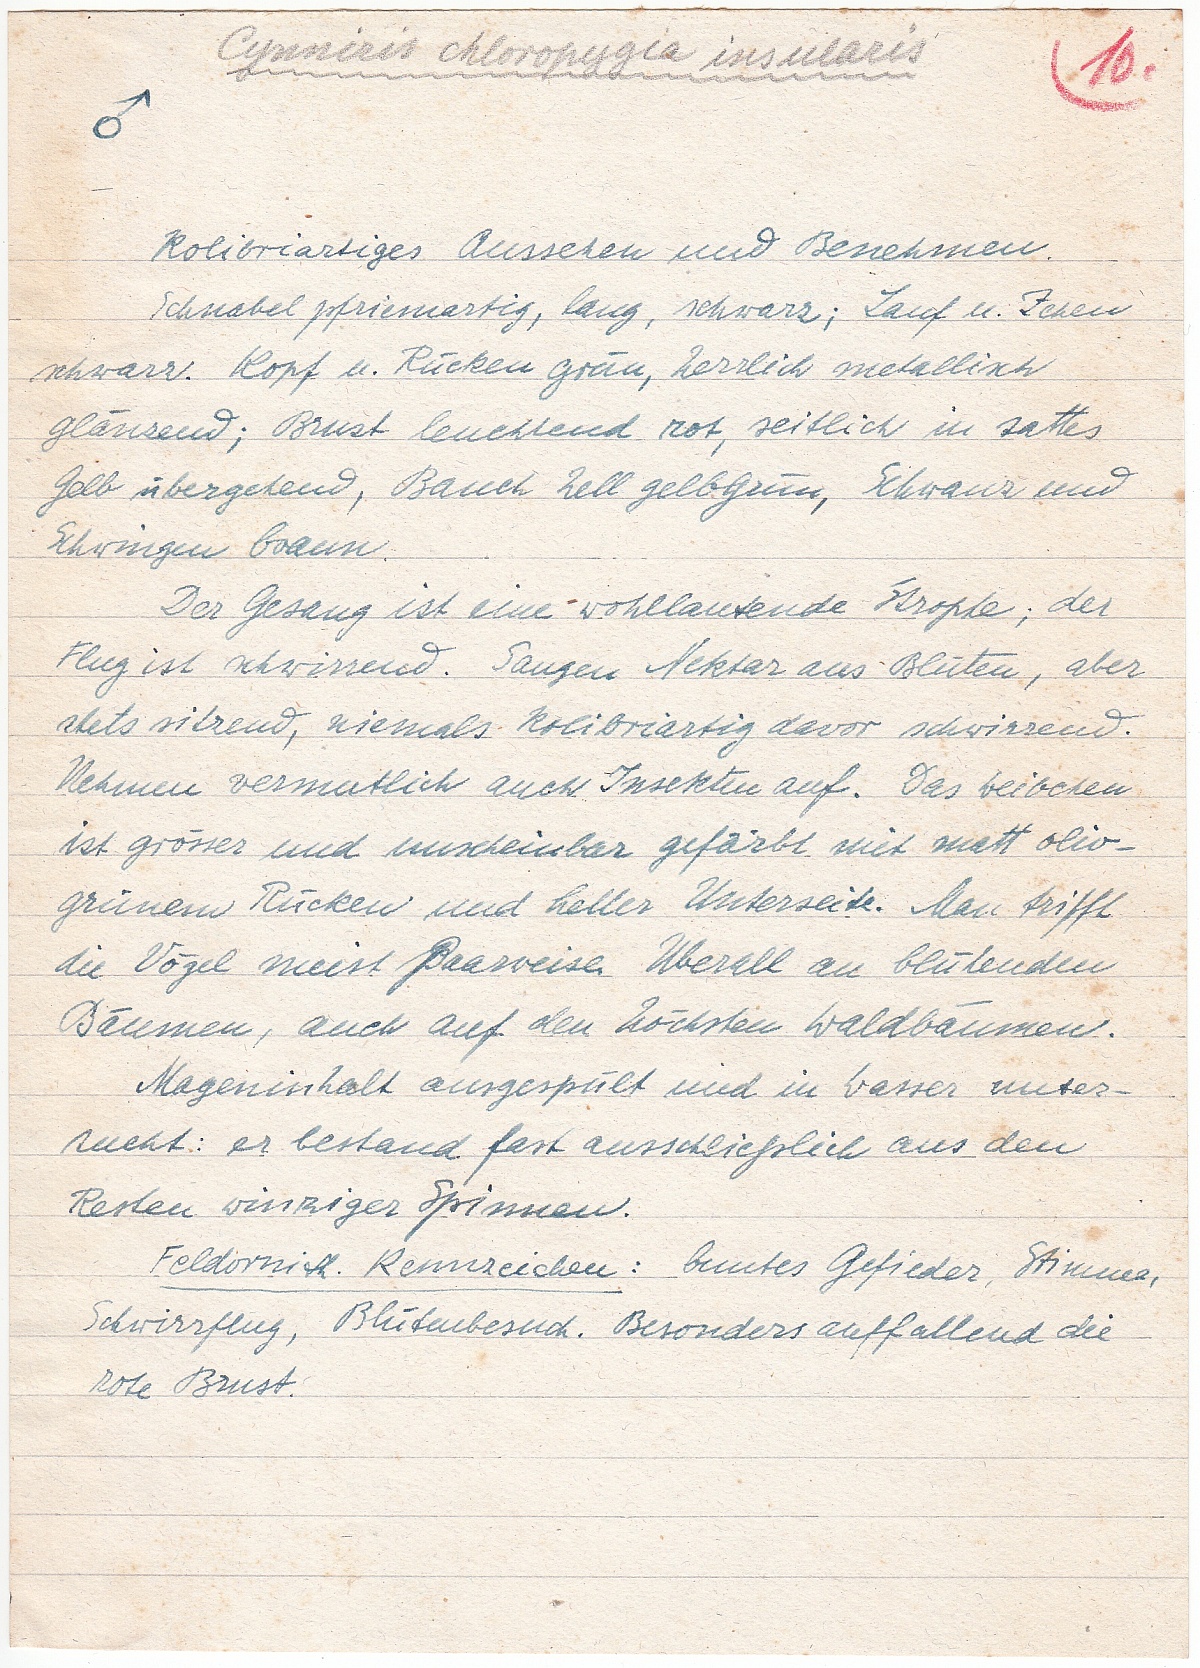 Cynniris chloropygia insularis
10.
♂
Kolibriartiges Aussehen und Benehmen.
Schnabel pfriemartig, lang, schwarz; Lauf u. Zehen
schwarz. Kopf u. Rücken grün, herrlich metallisch
glänzend; Brust leuchtend rot, seitlich in sattes
Gelb übergehend, Bauch hell gelbgrün, Schwanz und
Schwingen braun.
Der Gesang ist eine wohllautende Strophe; der
Flug ist schwirrend. Saugen Nektar aus Blüten, aber
stets sitzend, niemals kolibriartig davor schwirrend.
Nehmen vermutlich auch Insekten auf. Das Weibchen
ist grösser und unscheinbar gefärbt mit matt oliv-
grünem Rücken und heller Unterseite. Man trifft
die Vögel meist Paarweise. Überall an blühenden
Bäumen, auch auf den höchsten Waldbäumen.
Mageninhalt ausgespült und in Wasser unter-
sucht: er bestand fast ausschließlich aus den
Resten winziger Spinnen.
Feldornith. Kennzeichen: buntes Gefieder, Stimme,
Schwirrflug, Blütenbesuch. Besonders auffallend die
rote Brust.